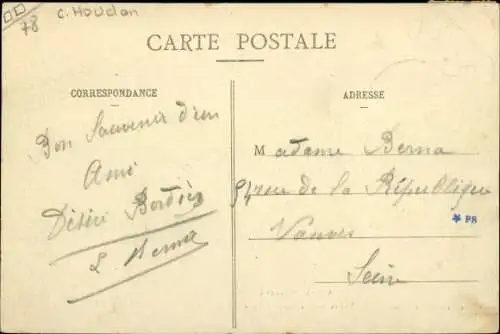 78
C. Houdan
CARTE POSTALE
CORRESPONDANCE
ADRESSE
Bon Souvenir d'un
Ami
Désiré
Madame Berna
54 rue de la République
Vanves
Seine
PS